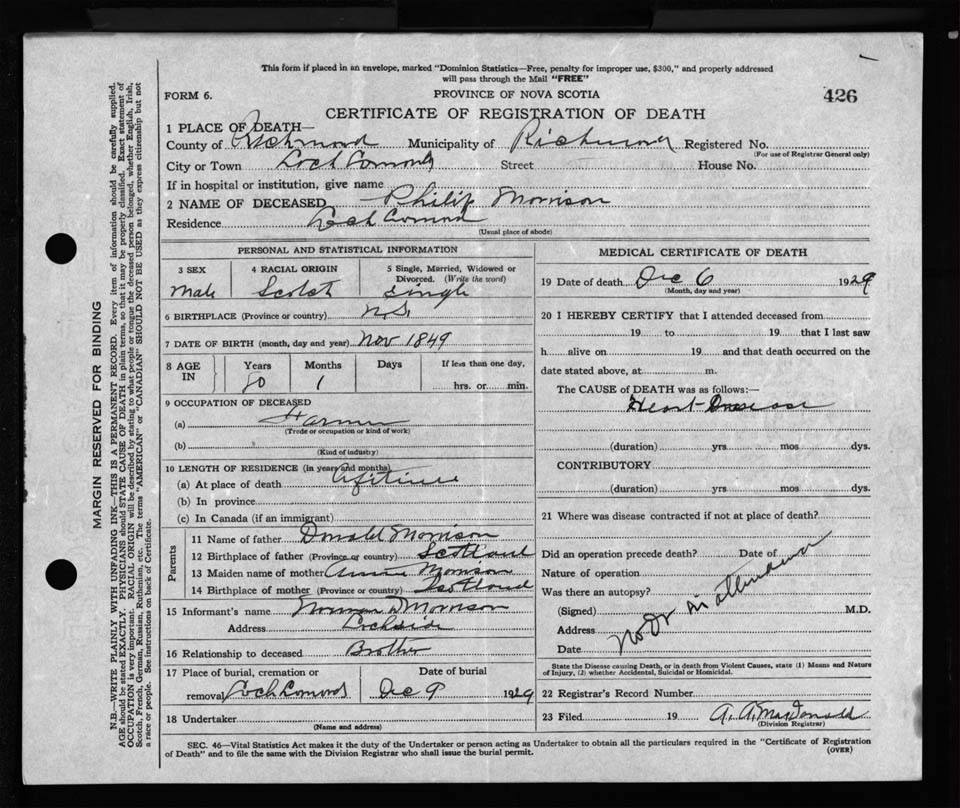 This form if placed in an envelope, marked "Dominion Statistics—Free, penalty for improper use, $300," and properly addressed
will pass through the Mail "FREE"
FORM 6.
PROVINCE OF NOVA SCOTIA
426
CERTIFICATE OF REGISTRATION OF DEATH
1 PLACE OF DEATH—
County of Richmond Municipality of Richmond Registered No.
(For use of Registrar General only)
City or Town Loch Lomond Street House No.
If in hospital or institution, give name
2 NAME OF DECEASED Philip Morrison
Residence Loch Lomond
(Usual place of abode)
PERSONAL AND STATISTICAL INFORMATION
3 SEX 4 RACIAL ORIGIN 5 Single, Married, Widowed or
Divorced. (Write the word)
Male Scotch Single
6 BIRTHPLACE (Province or country) N.S.
7 DATE OF BIRTH (month, day and year) Nov 1849
8 AGE IN Years Months Days If less than one day,
80 1 hrs. or min.
9 OCCUPATION OF DECEASED
(a) Farmer
(Trade or occupation or kind of work)
(b)
(Kind of industry)
10 LENGTH OF RESIDENCE (in years and months)
(a) At place of death Lifetime
(b) In province
(c) In Canada (if an immigrant)
Parents
11 Name of father Donald Morrison
12 Birthplace of father (Province or country) Scotland
13 Maiden name of mother Annie Morrison
14 Birthplace of mother (Province or country) Scotland
15 Informant's name Norman D Morrison
Address Lochside
16 Relationship to deceased Brother
17 Place of burial, cremation or Date of burial
removal Loch Lomond Dec 9 1929
18 Undertaker
(Name and address)
MEDICAL CERTIFICATE OF DEATH
19 Date of death Dec 6 1929
(Month, day and year)
20 I HEREBY CERTIFY that I attended deceased from
19 to 19 that I last saw
h alive on 19 and that death occurred on the
date stated above, at m.
The CAUSE of DEATH was as follows:—
Heart Disease
(duration) yrs mos dys.
CONTRIBUTORY
(duration) yrs mos dys.
21 Where was disease contracted if not at place of death?
Did an operation precede death? Date of
Nature of operation
Was there an autopsy?
(Signed) M.D.
Address
Date
No Dr in attendance
State the Disease causing Death, or in death from Violent Causes, state (1) Means and Nature
of Injury, (2) whether Accidental, Suicidal or Homicidal.
22 Registrar's Record Number
23 Filed 19 A. A. MacDonald
(Division Registrar)
SEC. 46—Vital Statistics Act makes it the duty of the Undertaker or person acting as Undertaker to obtain all the particulars required in the "Certificate of Registration
of Death" and to file the same with the Division Registrar who shall issue the burial permit.
(OVER)
MARGIN RESERVED FOR BINDING
N.B.—WRITE PLAINLY WITH UNFADING INK—THIS IS A PERMANENT RECORD. Every item of information should be carefully supplied.
AGE should be stated EXACTLY. PHYSICIANS should STATE CAUSE OF DEATH in plain terms, so that it may be properly classified. Exact statement of
OCCUPATION is very important. RACIAL ORIGIN will be described by stating to what people or tongue the deceased person belonged, whether English, Irish,
Scotch, French, German, Russian, Ruthenian, etc. The terms "AMERICAN" or "CANADIAN" SHOULD NOT BE USED as they express citizenship but not
a race or people. See instructions on back of Certificate.